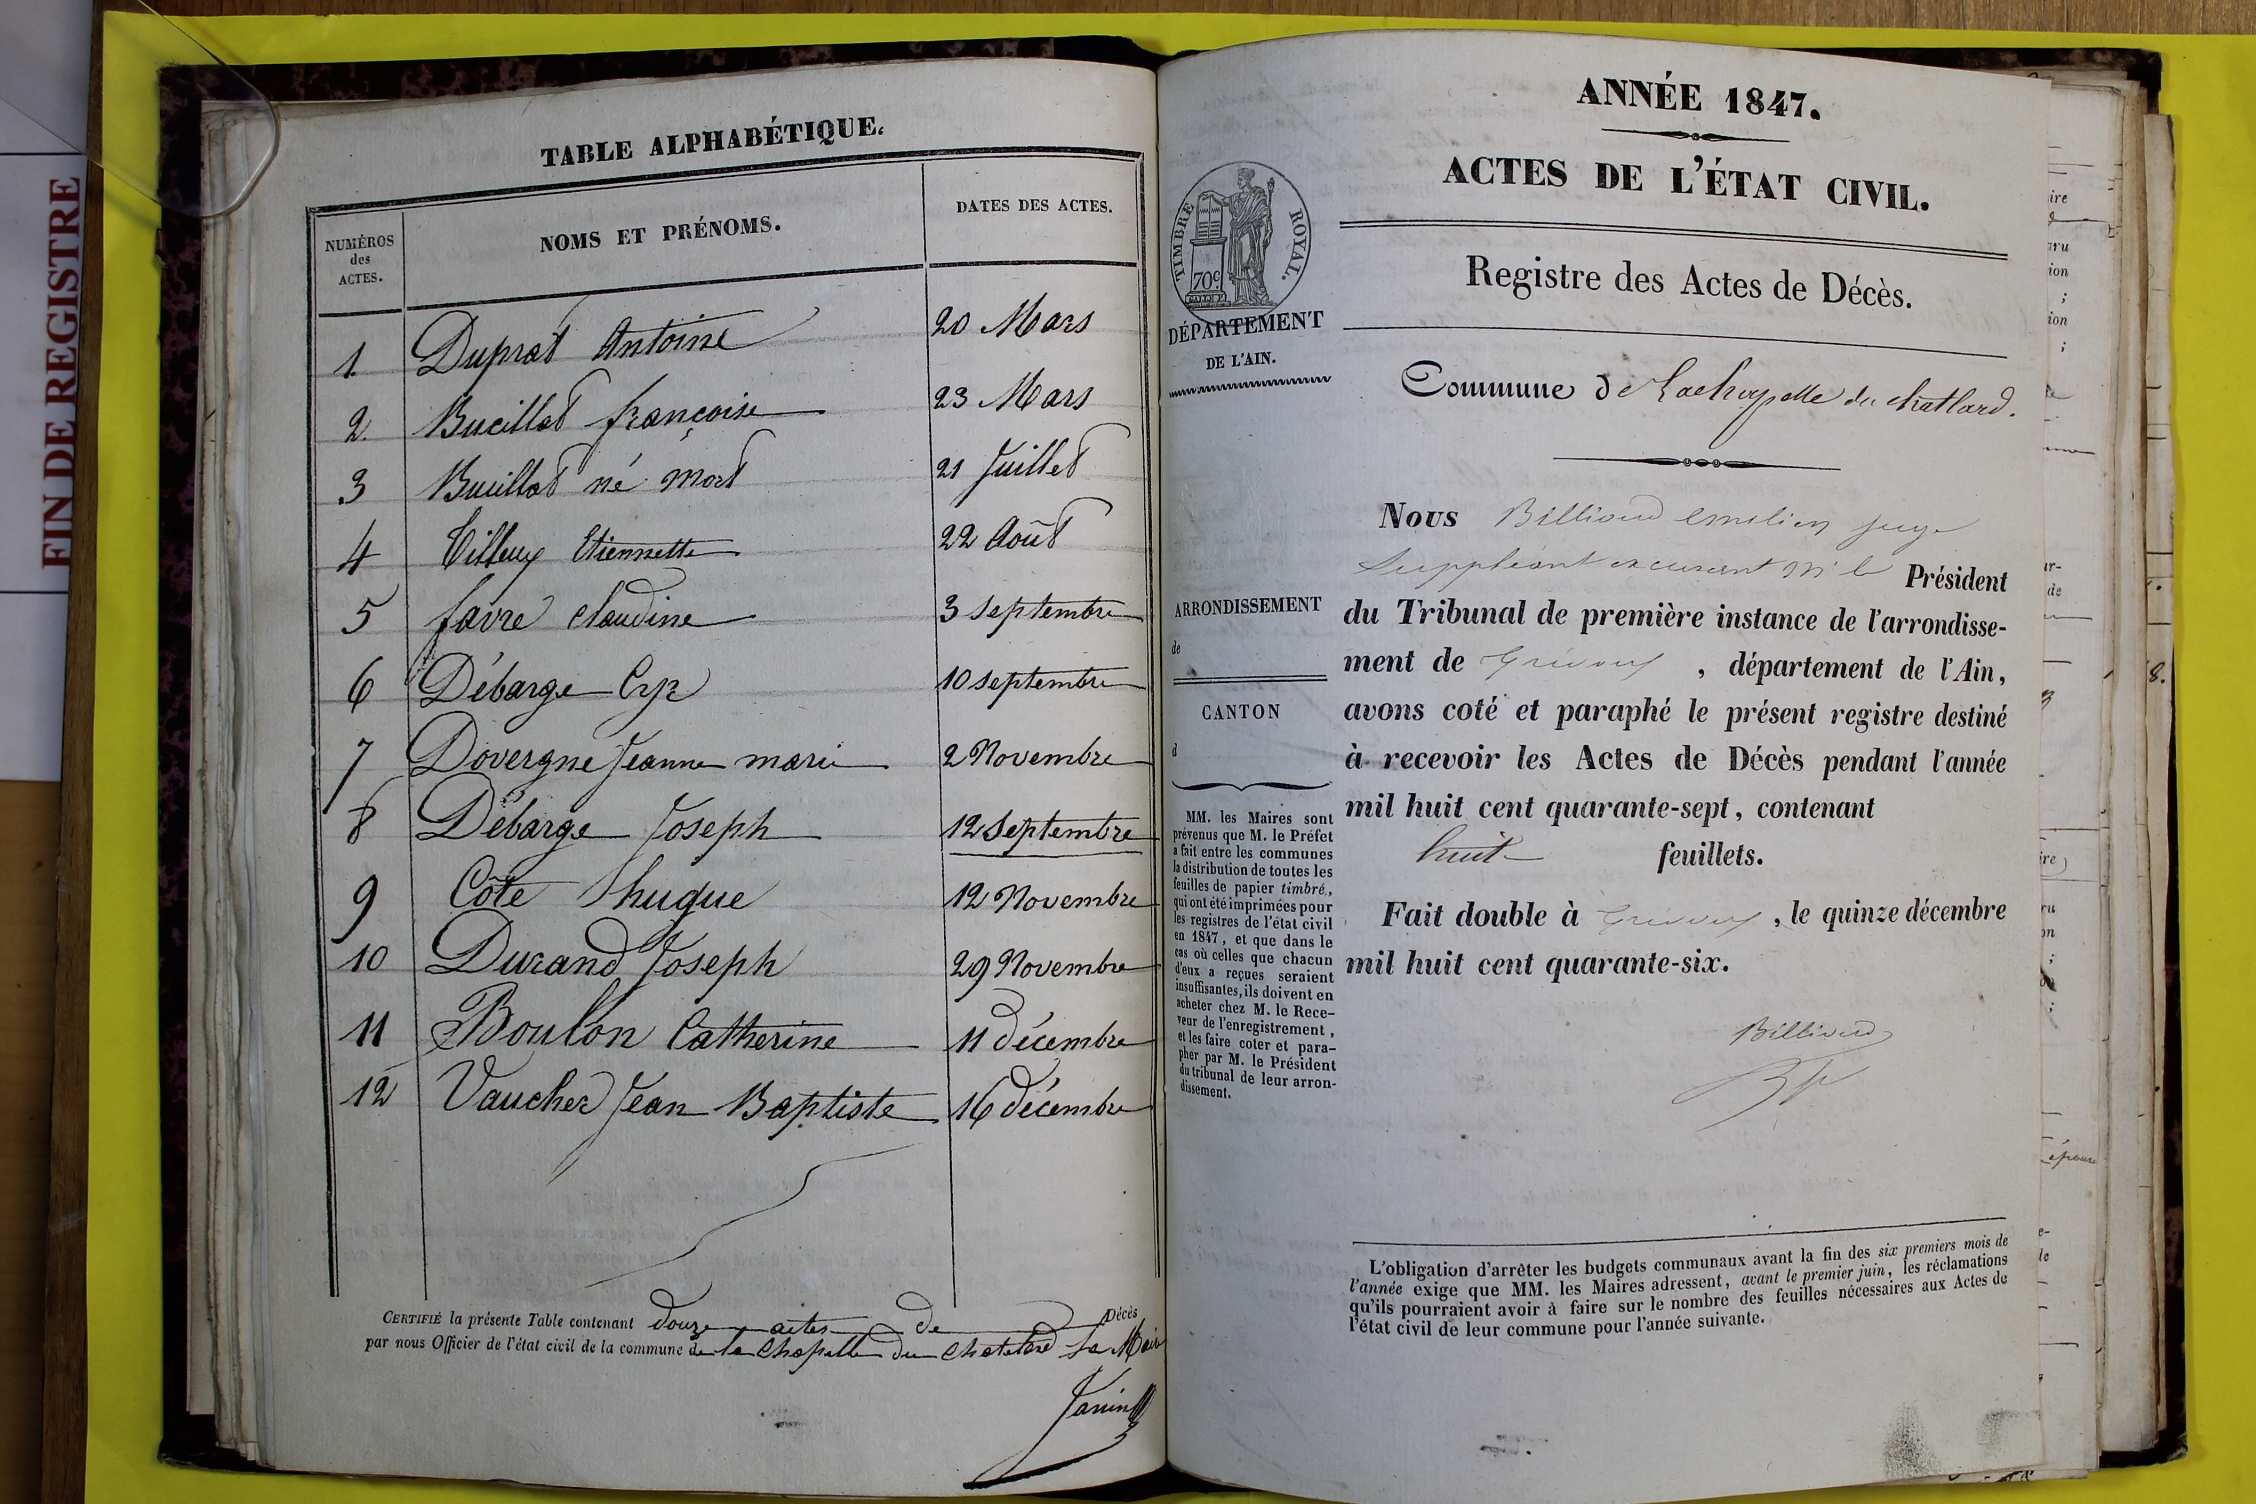 FIN DE REGISTRE
TABLE ALPHABÉTIQUE.
NUMÉROS des ACTES.
NOMS ET PRÉNOMS.
DATES DES ACTES.
1. Duprat Antoine 20 Mars
2. Bucillat françoise 23 Mars
3 Bucillat né mort 21 Juillet
4 Etiennette 22 Août
5 favre claudine 3 septembre
6 Débarge 10 septembre
7 Dovergne Jeanne marie 2 Novembre
8 Débarge Joseph 12 septembre
9 Côte hugue 12 Novembre
10 Durand Joseph 29 Novembre
11 Boulon Catherine 11 décembre
12 Vaucher Jean Baptiste 16 décembre
CERTIFIÉ la présente Table contenant douze actes de Décès
par nous Officier de l'état civil de la commune de la Chapelle du Chatelard Le Maire
Janin
ANNÉE 1847.
ACTES DE L'ÉTAT CIVIL.
Registre des Actes de Décès.
TIMBRE ROYAL.
70c
DÉPARTEMENT
DE L'AIN.
Commune de Lachapelle du chatlard.
Nous Billioud emilien juge
Suppléant excusant Mr le Président
du Tribunal de première instance de l'arrondisse-
ment de Trévoux, département de l'Ain,
avons coté et paraphé le présent registre destiné
à recevoir les Actes de Décès pendant l'année
mil huit cent quarante-sept, contenant
huit feuillets.
Fait double à Trévoux, le quinze décembre
mil huit cent quarante-six.
Billioud
ARRONDISSEMENT
de
CANTON
d
MM. les Maires sont
prévenus que M. le Préfet
a fait entre les communes
la distribution de toutes les
feuilles de papier timbré,
qui ont été imprimées pour
les registres de l'état civil
en 1847, et que dans le
cas où celles que chacun
d'eux a reçues seraient
insuffisantes, ils doivent en
acheter chez M. le Rece-
veur de l'enregistrement,
et les faire coter et para-
pher par M. le Président
du tribunal de leur arron-
dissement.
L'obligation d'arrêter les budgets communaux avant la fin des six premiers mois de
l'année exige que MM. les Maires adressent, avant le premier juin, les réclamations
qu'ils pourraient avoir à faire sur le nombre des feuilles nécessaires aux Actes de
l'état civil de leur commune pour l'année suivante.